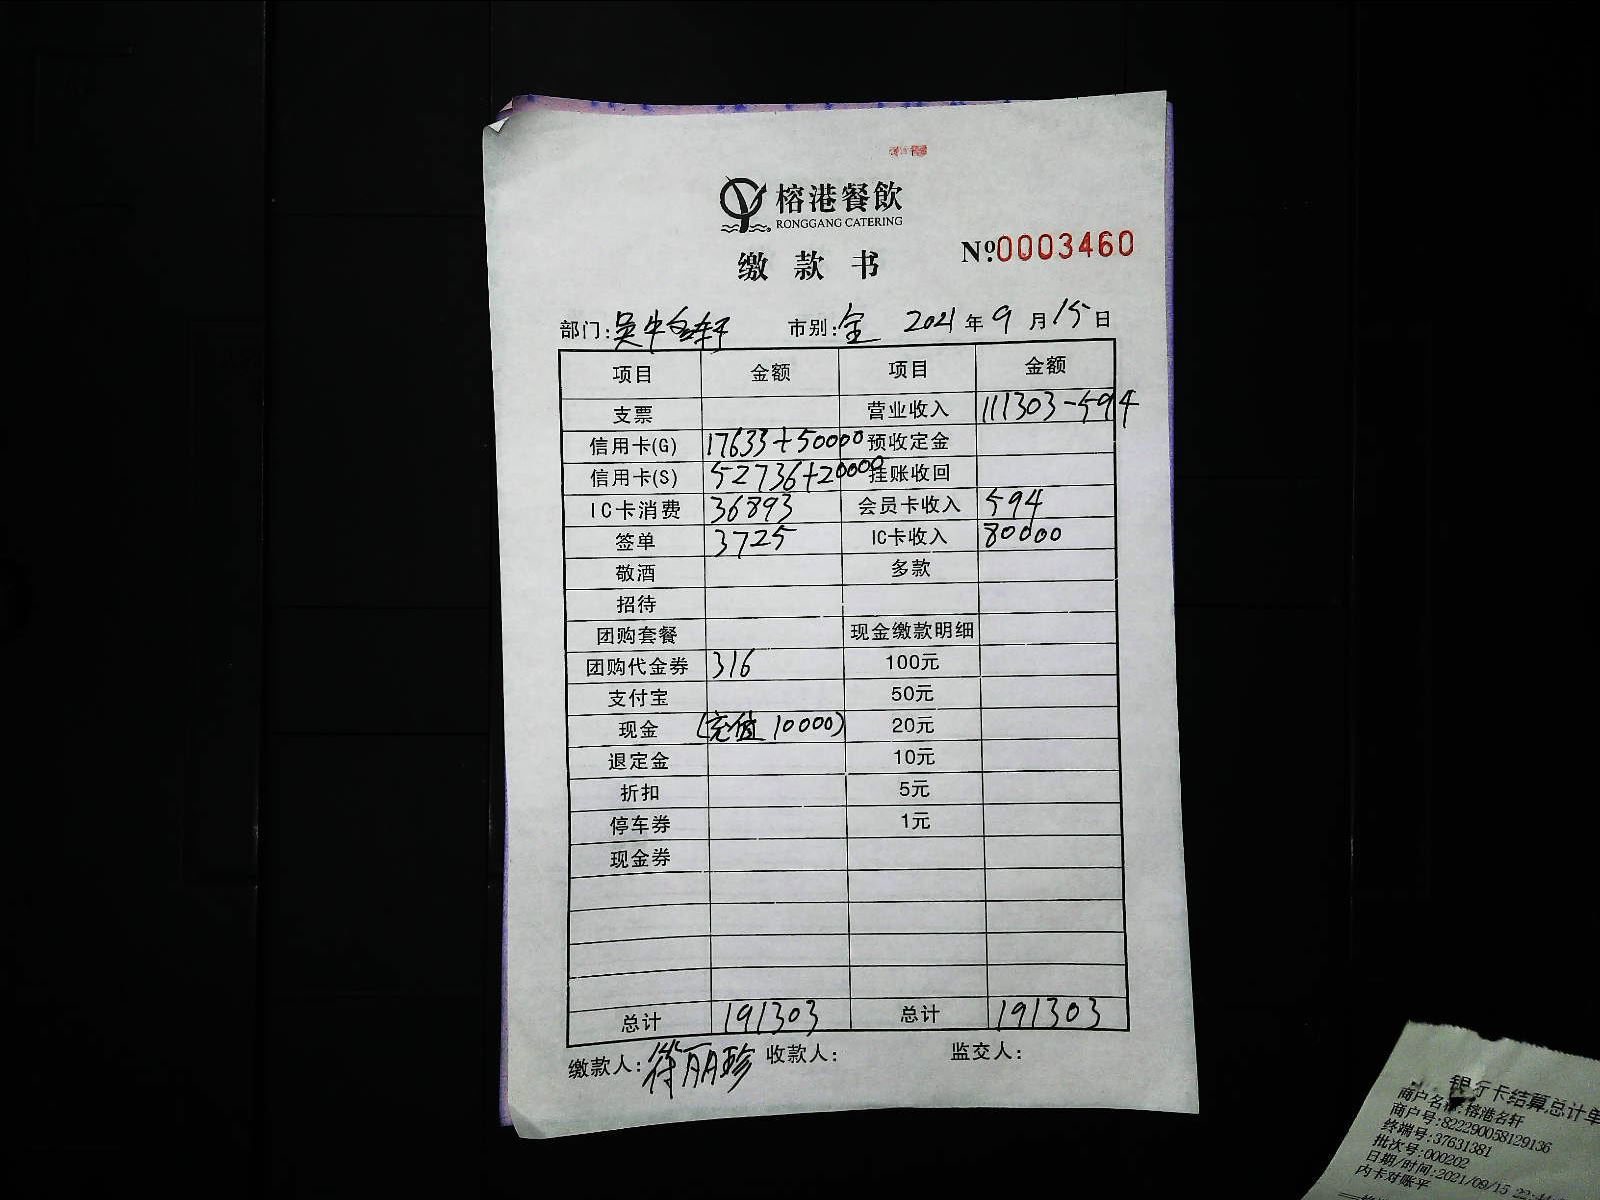 榕港餐飲
RONGGANG CATERING
缴款书
№0003460
部门: 市别:全 2021年9月15日
项目 金额 项目 金额
支票 营业收入 111303-594
信用卡(G) 17633+50000 预收定金
信用卡(S) 52736+20000 挂账收回
IC卡消费 36893 会员卡收入 594
签单 3725 IC卡收入 80000
敬酒 多款
招待
团购套餐 现金缴款明细
团购代金券 316 100元
支付宝 50元
现金 (充值 10000) 20元
退定金 10元
折扣 5元
停车券 1元
现金券
总计 191303 总计 191303
缴款人:徐丽珍 收款人: 监交人:
银行卡结算总计单
商户名称:榕港名轩
商户号:822290058129136
终端号:37631381
批次号:000202
日期/时间:2021/09/15
内卡对账平